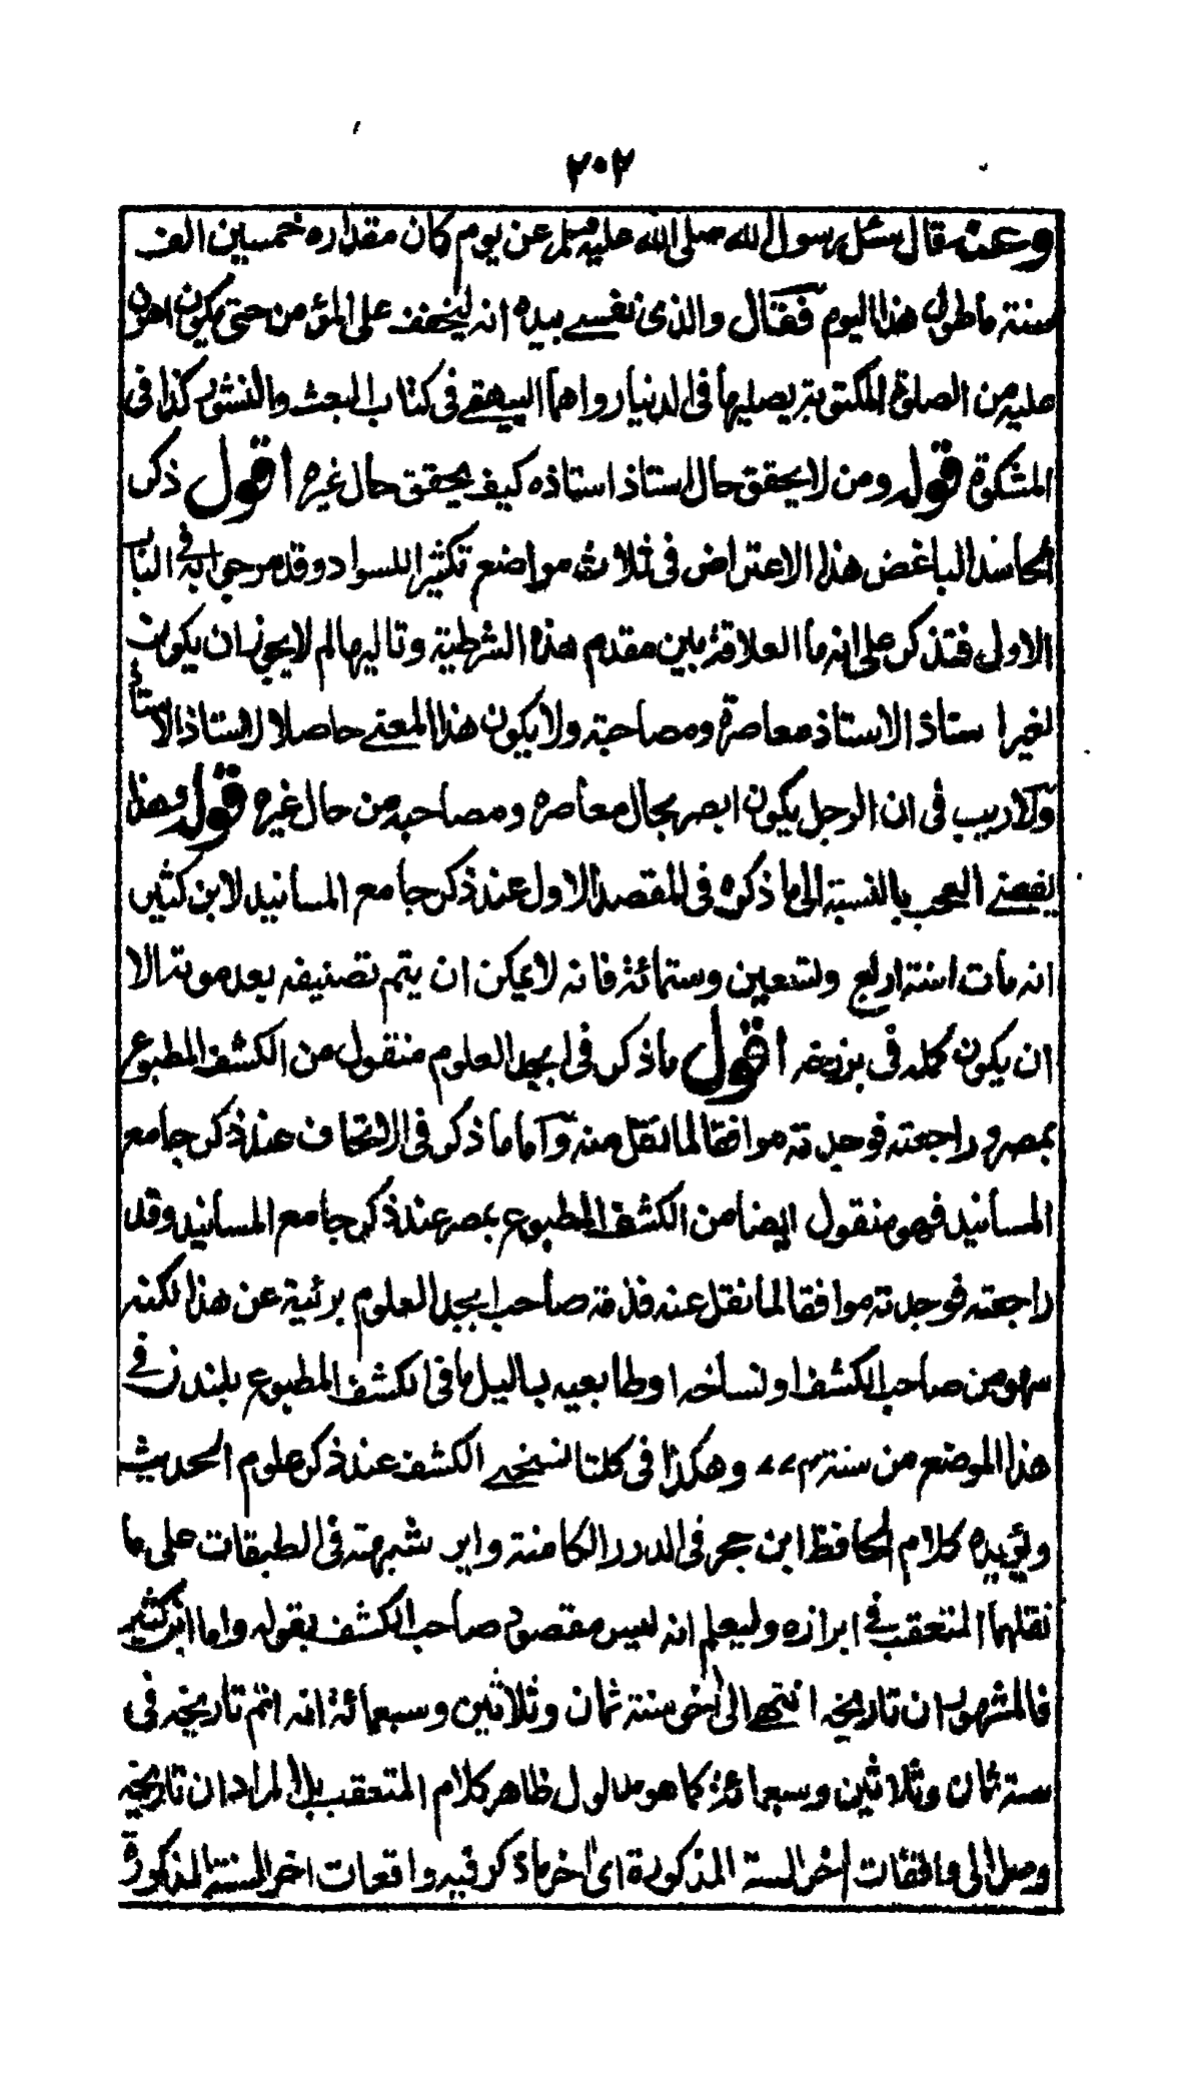 ٢٠٢
وعنه قال سئل رسول الله صلى الله عليه وسلم عن يوم كان مقداره خمسين الف
سنة ما طول هذا اليوم فقال والذى نفسى بيده انه ليخفف على المؤمن حتى يكون اهون
عليه من الصلوة المكتوبة يصليها فى الدنيا رواهما البيهقى فى كتاب البعث والنشور كذا فى
المشكوة قوله ومن لا يحقق حال استاذ استاذه كيف يحقق حال غيره اقول ذكر
الحاسد الباغض هذا الاعتراض فى ثلاث مواضع تكثيرا للسواد وقد مر جوابه فى الباب
الاول فتذكر على انه ما العلاقة بين مقدم هذه الشرطية وتاليها لم لا يجوز ان يكون
لغير استاذ الاستاذ معاصرة ومصاحبة ولا يكون هذا المعنى حاصلا لاستاذ الاستاذ
ولا ريب فى ان الرجل يكون ابصر بحال معاصره ومصاحبه من حال غيره قوله وهذا
يفضى العجب بالنسبة الى ما ذكره فى المقصد الاول عند ذكر جامع المسانيد لابن كثير
انه مات سنة اربع وتسعين وستمائة فانه لا يمكن ان يتم تصنيفه بعد موته الا
ان يكون كمله فى برزخه اقول ما ذكر فى ابجد العلوم منقول من الكشف المطبوع
بمصر وراجعته فوجدته موافقا لما نقل منه وآما ما ذكر فى الاتحاف عند ذكر جامع
المسانيد فهو منقول ايضا من الكشف المطبوع بمصر عند ذكر جامع المسانيد وقد
راجعته فوجدته موافقا لما نقل عنه فذمة صاحب ابجد العلوم برئية عن هذا لكنه
سهو من صاحب الكشف او نساخه او طابعيه بدليل ما فى الكشف المطبوع بلندن فى
هذا الموضع من سنة ٧٧٤ وهكذا فى كلتا نسختى الكشف عند ذكر علوم الحديث
ويؤيده كلام الحافظ ابن حجر فى الدرر الكامنة وابن شهبة فى الطبقات على ما
نقلهما المتعقب فى ابرازه وليعلم انه ليس مقصود صاحب الكشف بقوله واما ابن كثير
فالمشهور ان تاريخه انتهى الى اخر سنة ثمان وثلاثين وسبعمائة انه اتم تاريخه فى
سنة ثمان وثلاثين وسبعمائة كما هو مدلول ظاهر كلام المتعقب بل المراد ان تاريخه
وصل الى واقعات اخر السنة المذكورة اى اخر ما ذكر فيه واقعات اخر السنة المذكورة